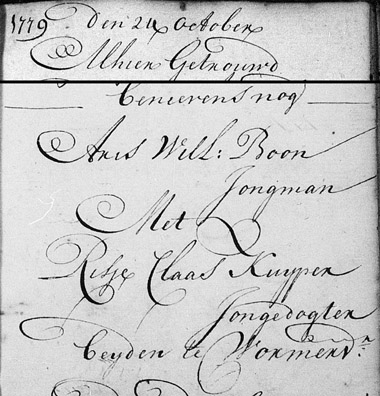 1779 Den 24 October
Alhier Getrouwd
Eenierens nog
Aris Will: Boon
Jongman
Met
Risje Claas Kuyper
Jongedogter
beyden te Wormerv:r